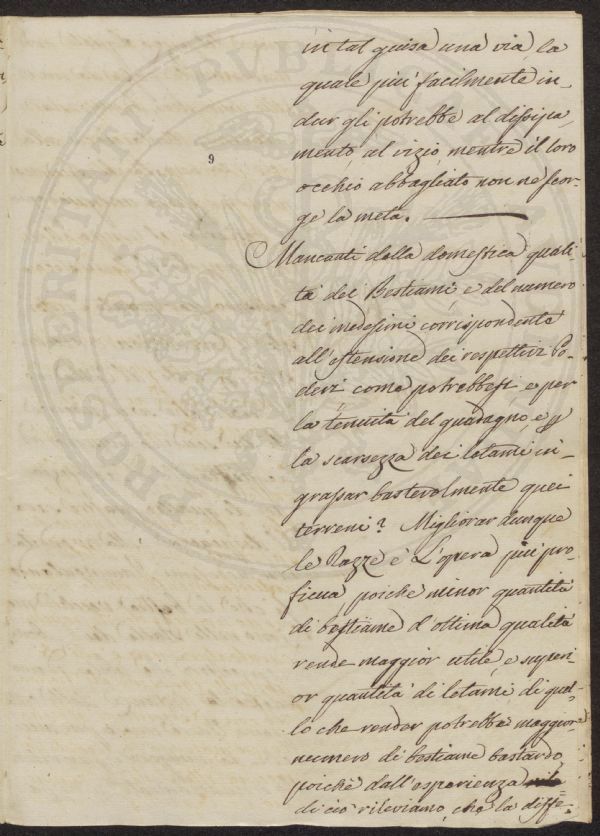 in tal guisa una via, la
quale piú facilmente in-
dur gli potrebbe al dissipa-
mento al vizio, mentre il loro
occhio abbagliato non ne scor-
ge la meta.
9
Mancanti della domestica quali-
tà del Bestiame, e del numero
dei medesimi corrispondente
all'estensione dei respettivi Po-
deri, come potrebbesi e per
la tenuità del guadagno, e p
la scarsezza dei letami in-
grassar bastevolmente quei
terreni? Migliorar dunque
le Razze è L'opera piú pro-
ficua, poiche minor quantità
di bestiame d'ottima qualità
rende maggior utile, e superi-
or quantità di letami di quel-
lo che render potrebbe maggior
numero di bestiame bastardo,
poichè dall'esperienza
di ciò rileviamo, che la diffe-